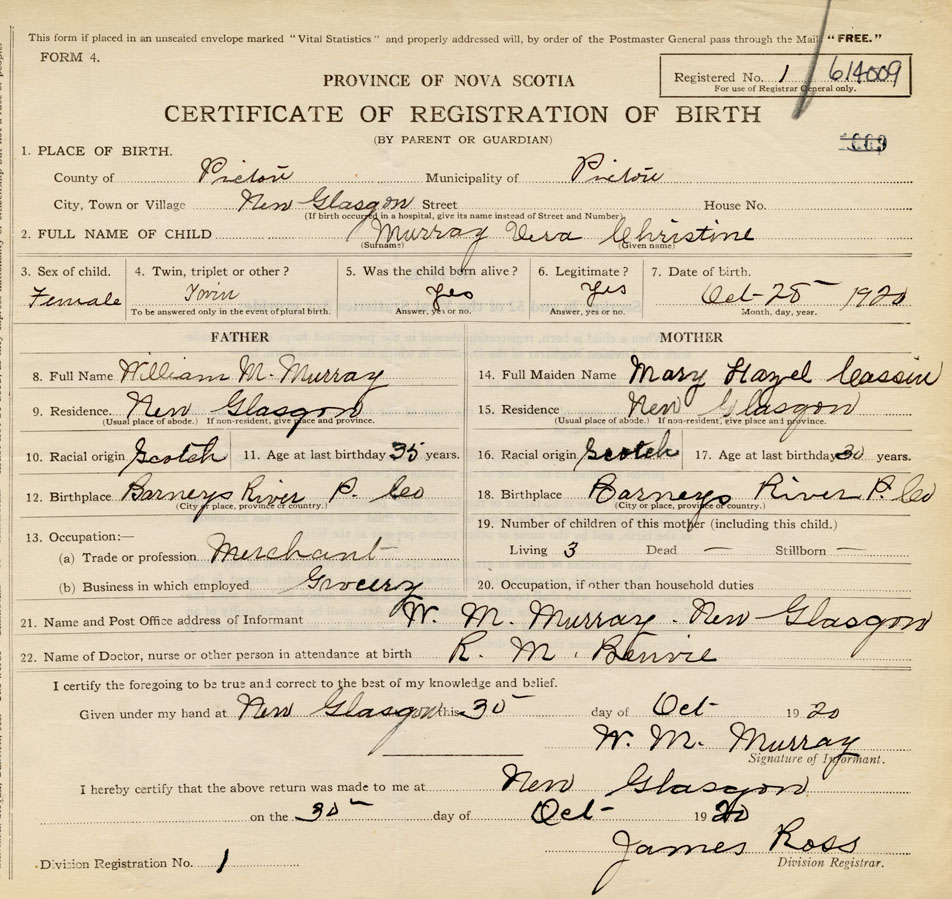 This form if placed in an unsealed envelope marked "Vital Statistics" and properly addressed will, by order of the Postmaster General pass through the Mail "FREE."
FORM 4.
PROVINCE OF NOVA SCOTIA
Registered No. 1 614009
For use of Registrar General only.
CERTIFICATE OF REGISTRATION OF BIRTH
(BY PARENT OR GUARDIAN)
1. PLACE OF BIRTH.
County of Pictou Municipality of Pictou
City, Town or Village New Glasgow Street House No.
(If birth occurred in a hospital, give its name instead of Street and Number)
2. FULL NAME OF CHILD Murray Vera Christine
(Surname) (Given name)
3. Sex of child. 4. Twin, triplet or other? 5. Was the child born alive? 6. Legitimate? 7. Date of birth.
Female Twin Yes Yes Oct- 28 1920
To be answered only in the event of plural birth. Answer, yes or no. Answer, yes or no. Month, day, year.
FATHER MOTHER
8. Full Name William M. Murray 14. Full Maiden Name Mary Hazel
9. Residence. New Glasgow 15. Residence New Glasgow
(Usual place of abode.) If non-resident, give place and province. (Usual place of abode.) If non-resident, give place and province.
10. Racial origin Scotch 11. Age at last birthday 35 years. 16. Racial origin Scotch 17. Age at last birthday 30 years.
12. Birthplace Barneys River P. Co 18. Birthplace Barneys River P. Co
(City or place, province or country.) (City or place, province or country.)
13. Occupation:— 19. Number of children of this mother (including this child.)
(a) Trade or profession Merchant Living 3 Dead — Stillborn —
(b) Business in which employed Grocery 20. Occupation, if other than household duties
21. Name and Post Office address of Informant W. M. Murray. New Glasgow
22. Name of Doctor, nurse or other person in attendance at birth R. M. Benvie
I certify the foregoing to be true and correct to the best of my knowledge and belief.
Given under my hand at New Glasgow this 30 day of Oct- 1920
W. M. Murray
Signature of Informant.
I hereby certify that the above return was made to me at New Glasgow
on the 30 day of Oct- 1920
James Ross
Division Registration No. 1 Division Registrar.